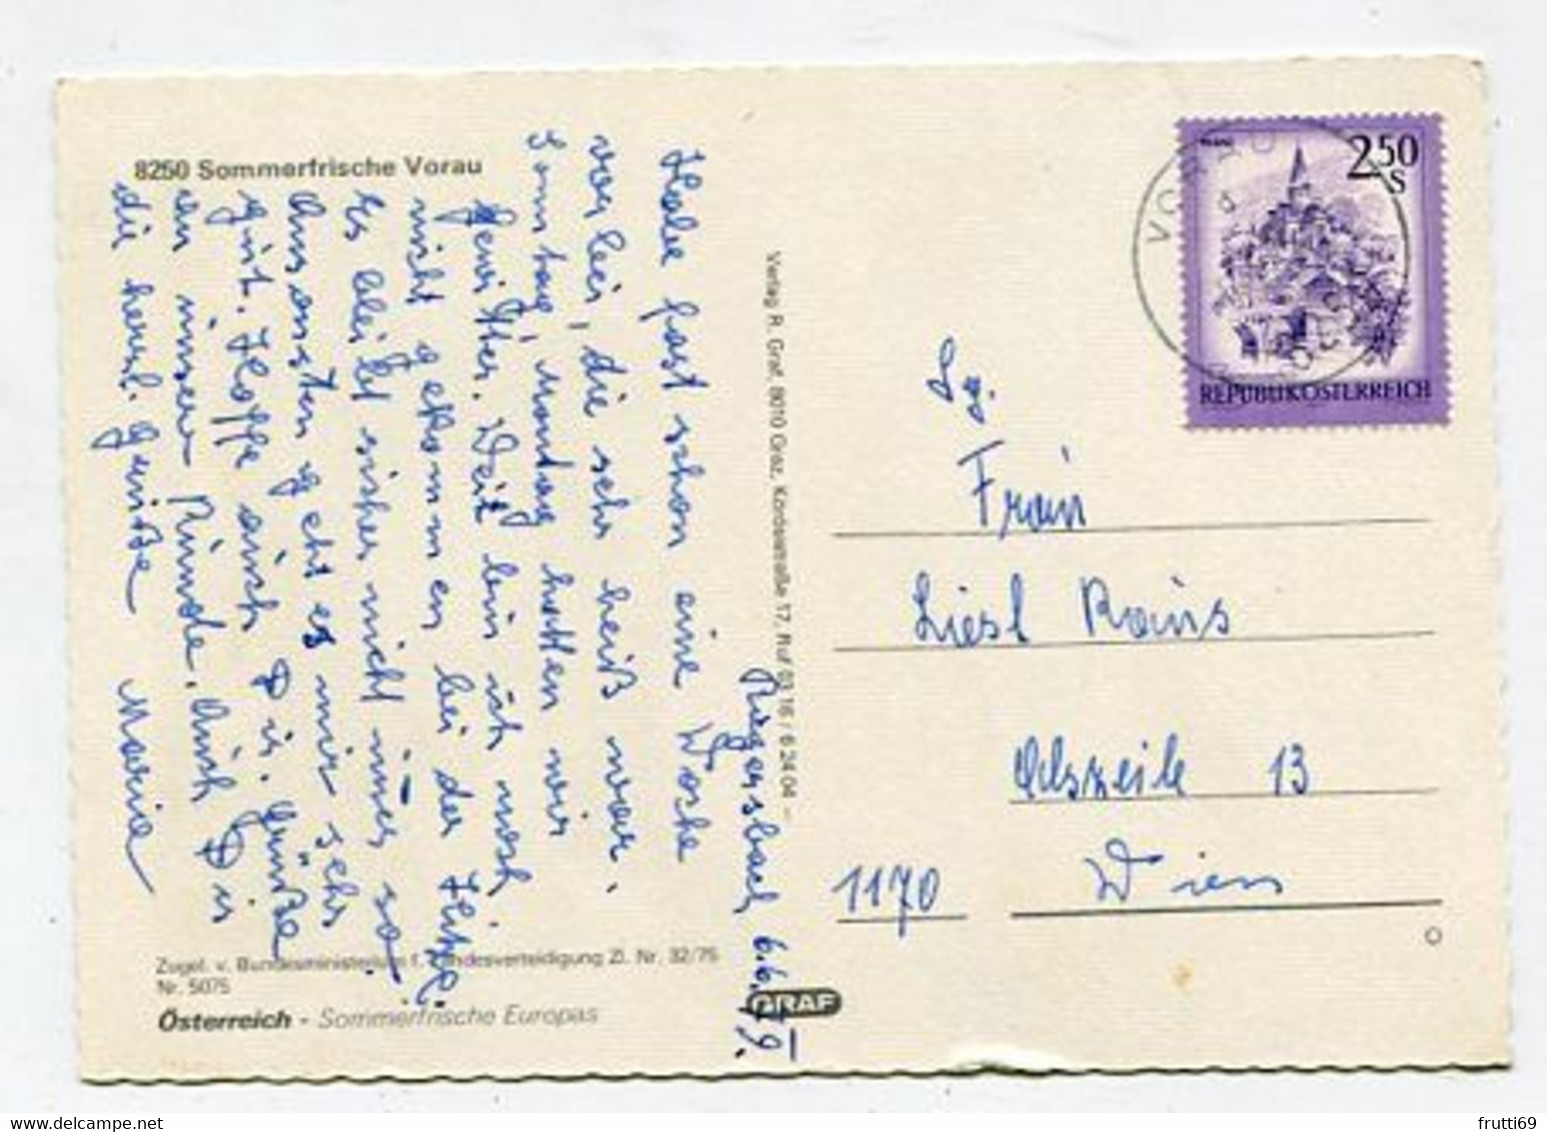 8250 Sommerfrische Vorau
Riegersbach 6.6.79.
Habe fast schon eine Woche
vorbei, die sehr heiß war.
Sonntag, Montag hatten wir
Gewitter. Weit bin ich noch
nicht gekommen bei der Hitze.
Es bleibt sicher nicht immer so.
Ansonsten geht es mir sehr
gut. Hoffe auch Dir. Grüße
an unsere Runde. Auch Dir
die herzl. Grüße Maria
Verlag R. Graf, 8010 Graz, Korösistraße 17, Ruf 03 16 / 6 24 04 -
Zugel. v. Bundesministerium f. Landesverteidigung Zl. Nr. 32/75
Nr. 5075
Österreich - Sommerfrische Europas
GRAF
VORAU
2.50
S
REPUBLIK ÖSTERREICH
Frau
Liesl
Alszeile 13
1170 Wien
frutti69